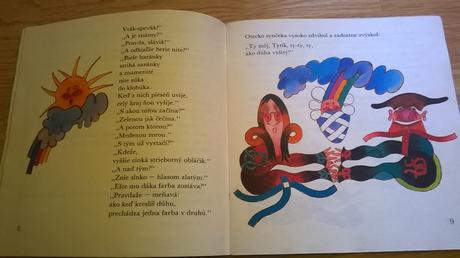 Vták-spevák?“
„A je známy?“
„Pravda, slávik!“
„A odkiaľže berie nite?“
„Biele baránky
strihá zaránky
a znamenité
nite súka
do klobúka.
Keď z nich pieseň uvije,
celý kraj ňou vyšije.“
„S akou niťou začína?“
„Zelenou jak čečina.“
„A potom ktorou?“
„Medenou zorou.“
„S tým už vystačí?“
„Kdeže,
vyššie cinká strieborný obláčik.“
„A nad tým?“
„Znie slnko – hlasom zlatým.“
„Ešte mu dáka farba zostáva?“
„Pravdaže – meňavá:
ako keď kreslíš dúhu,
prechádza jedna farba v druhú.“
8
Otecko synčeka vysoko zdvihol a radostne zvýskol:
„Ty môj, Tytik, ty-ty, ty,
ako dúha vyšitý!“
9